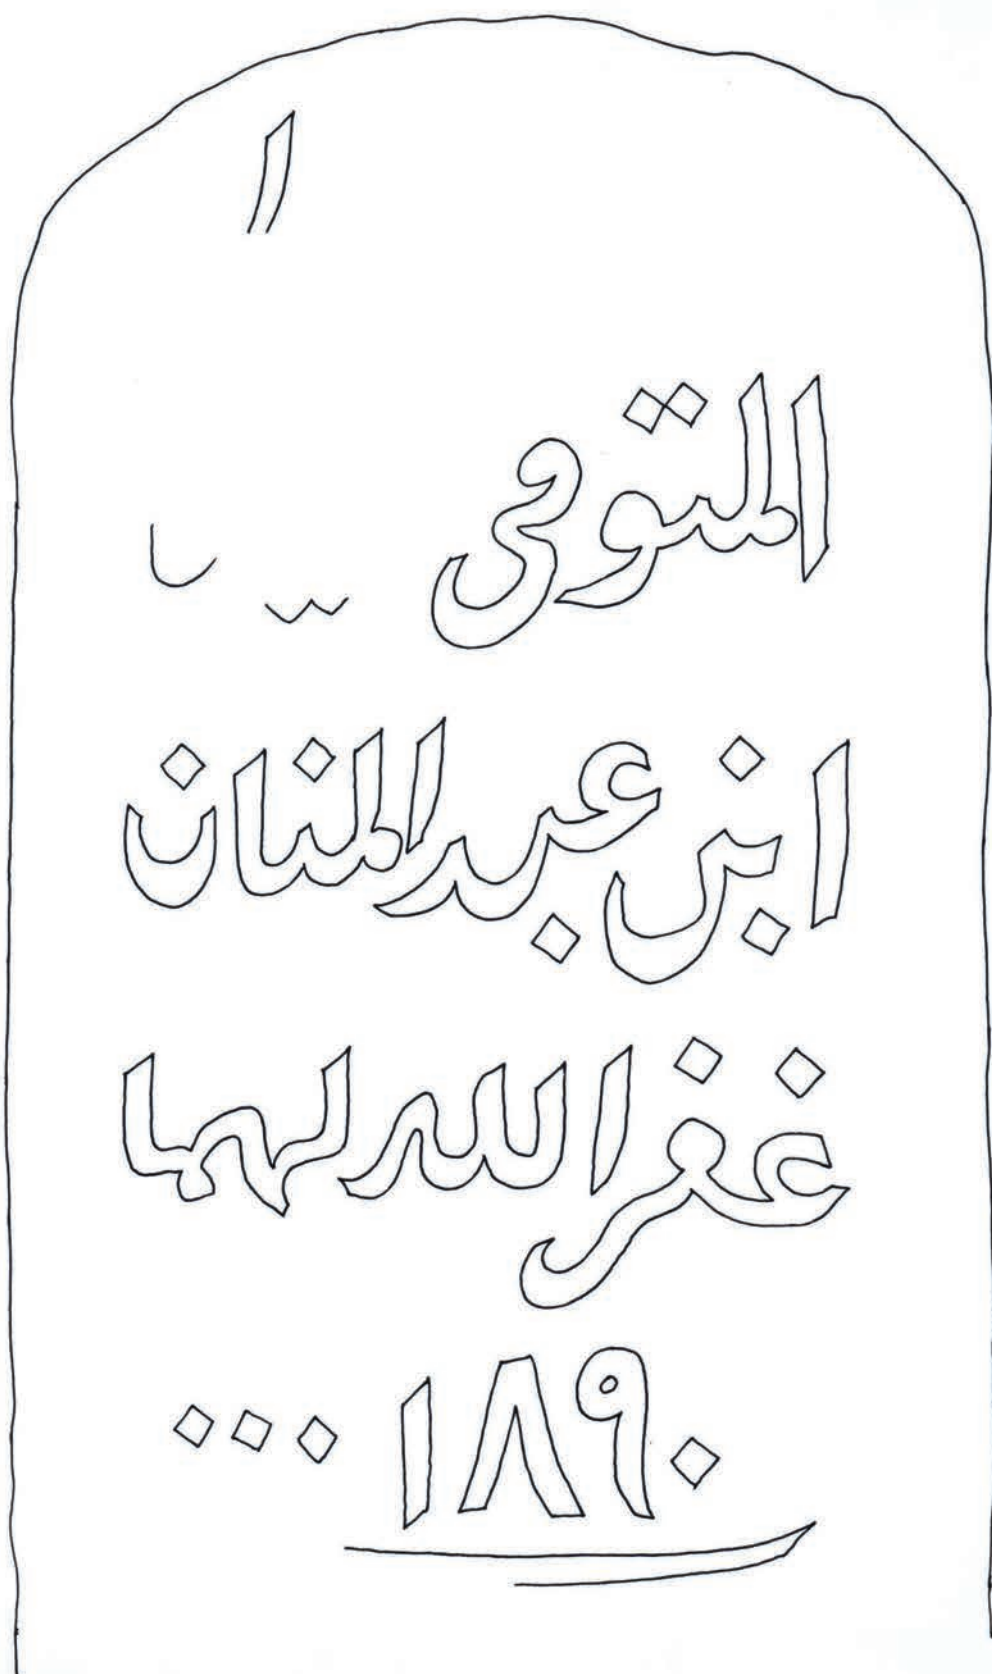 المتوفى
ابن عبد المنان
غفر الله لهما
١٨٩٠